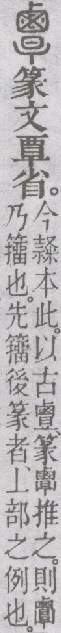 篆文覃省。
今隸本此。以古篆推之。則
乃籒也。先籒後篆者、丄部之例也。